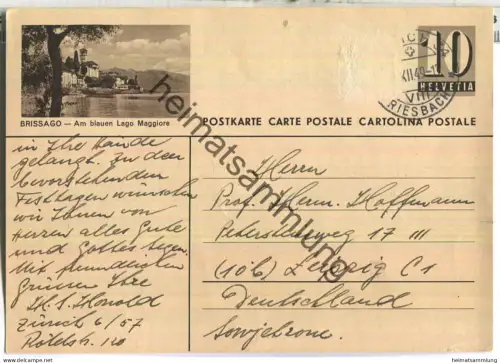 BRISSAGO — Am blauen Lago Maggiore
10
HELVETIA
XII 49
VIII
RIESBACH
POSTKARTE CARTE POSTALE CARTOLINA POSTALE
in Ihre Hände
gelangt. Zu den
bevorstehenden
Festtagen wünschen
wir Ihnen von
Herzen alles Gute
und Gottes Segen.
Mit freundlichen
Grüssen Ihre
Zürich 6/57
Herrn
Prof. Herm. Hoffmann
Petersteinweg 17 III
(10b) Leipzig C1
Deutschland
Sowjetzone.
heimatsammlung.com
heimatsammlung.com